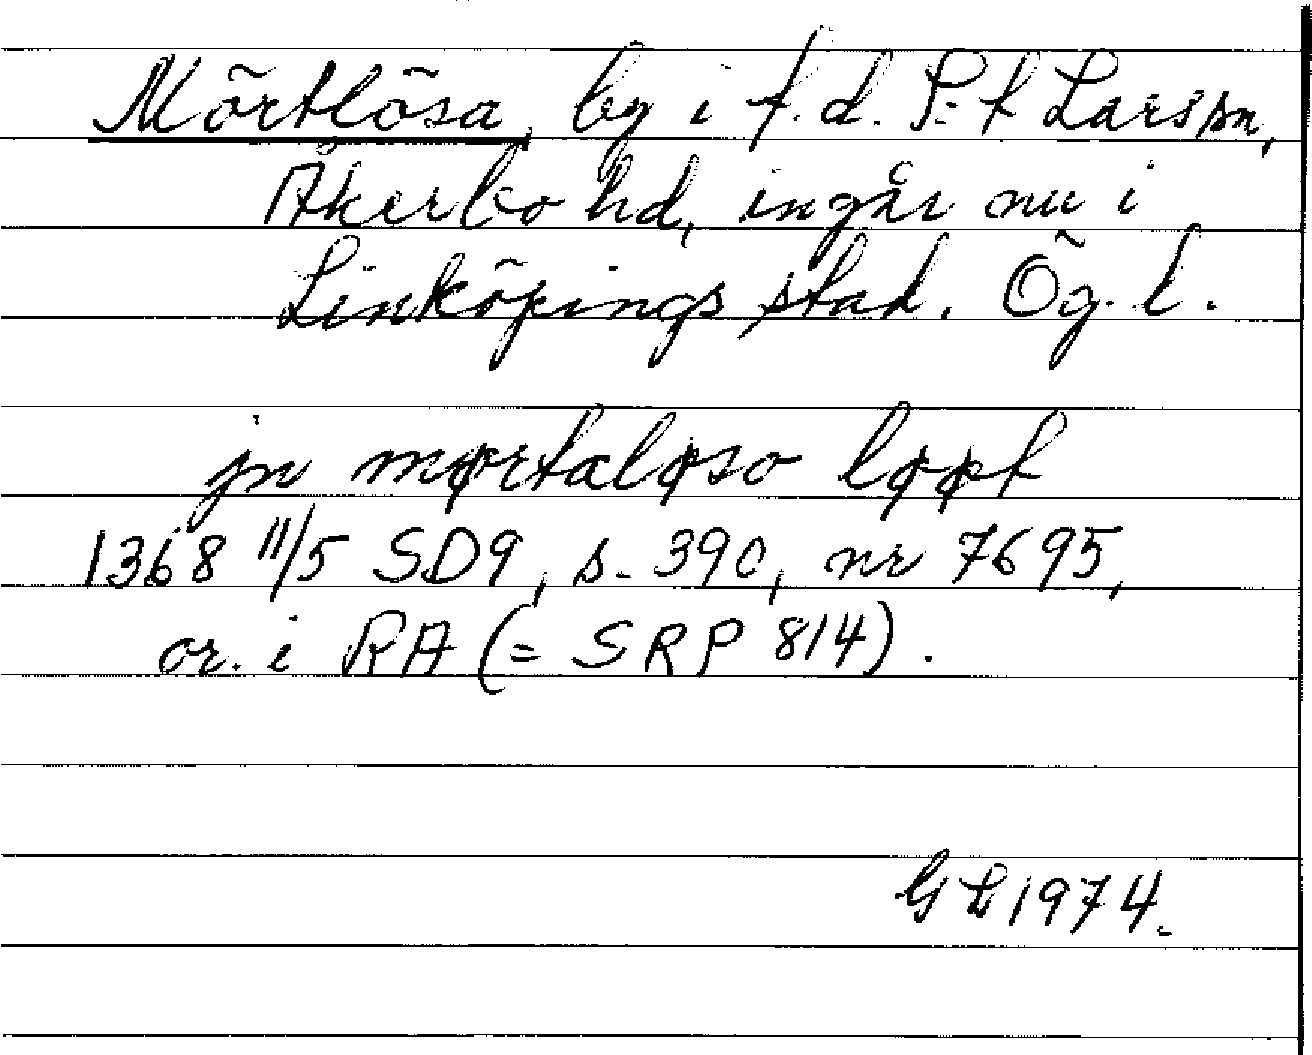 Mörtlösa, by i f.d. S:t Lars sn,
Åkerbo hd, ingår nu i
Linköpings stad. Ög. l.
jn mørtaløso løpt
1368 11/5 SD9, s. 390, nr 7695,
or. i RA (= SRP 814).
GL 1974.